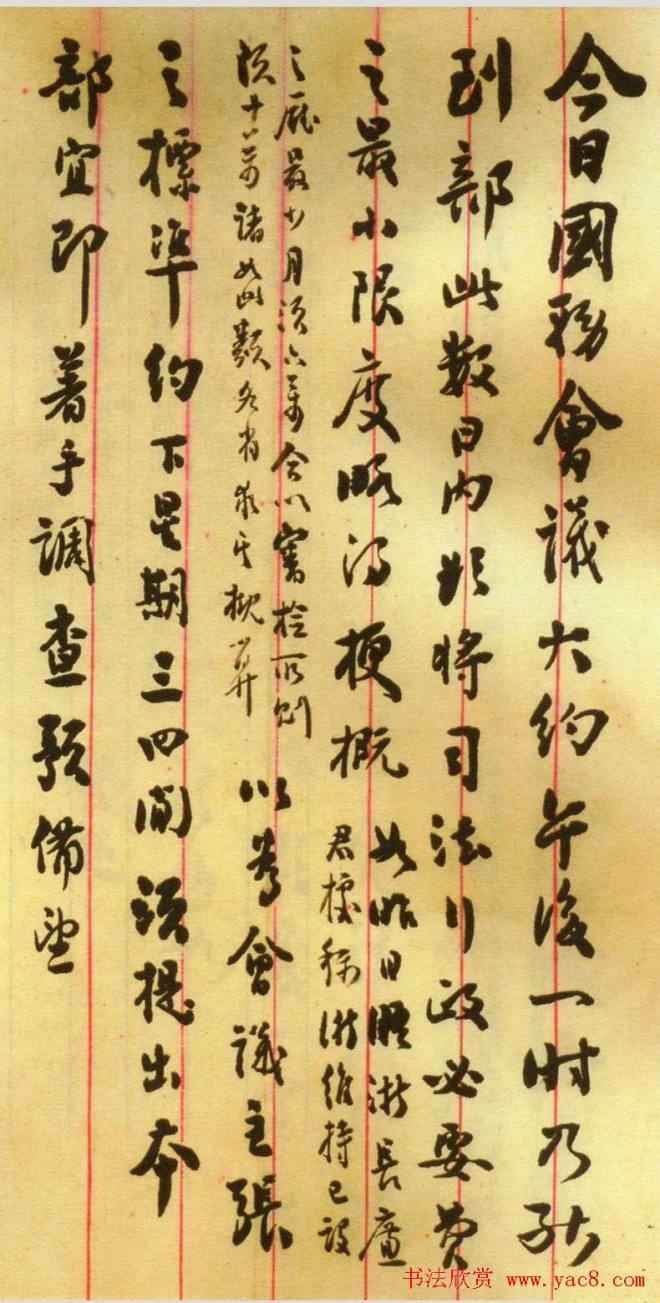 今日國務會議大約午後一时乃能
到部此數日内欲將司法行政必要費
之最小限度略得梗概
如昨日晤浙長
君據稱浙維持已設
之廳最少月須六萬合以審檢所則
須十萬諸如此類各省求其概算
以為會議主張
之標準約下星期三四間須提出本
部宜即着手調查預備望
书法欣赏 www.yac8.com